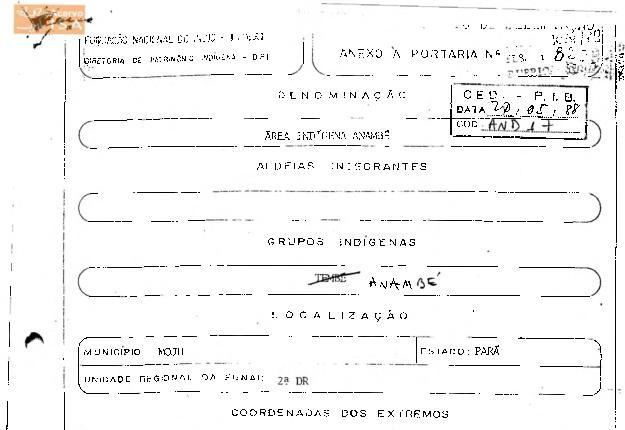 Acervo
ISA
FUNDAÇÃO NACIONAL DO ÍNDIO - FUNAI
DIRETORIA DE PATRIMÔNIO INDÍGENA - DPI
ANEXO À PORTARIA Nº
DENOMINAÇÃO
CEDI - P.I.B.
DATA 20, 05, 88
COD. AND 17
ÁREA INDÍGENA ANAMBÉ
ALDEIAS INTEGRANTES
GRUPOS INDÍGENAS
TEMBÉ ANAMBÉ
LOCALIZAÇÃO
MUNICÍPIO MOJU
ESTADO: PARÁ
UNIDADE REGIONAL DA FUNAI: 2ª DR
COORDENADAS DOS EXTREMOS